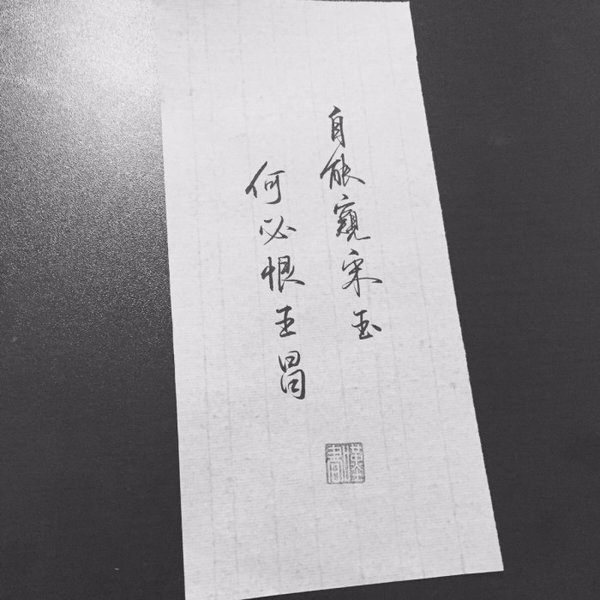 自能窺宋玉
何必恨王昌